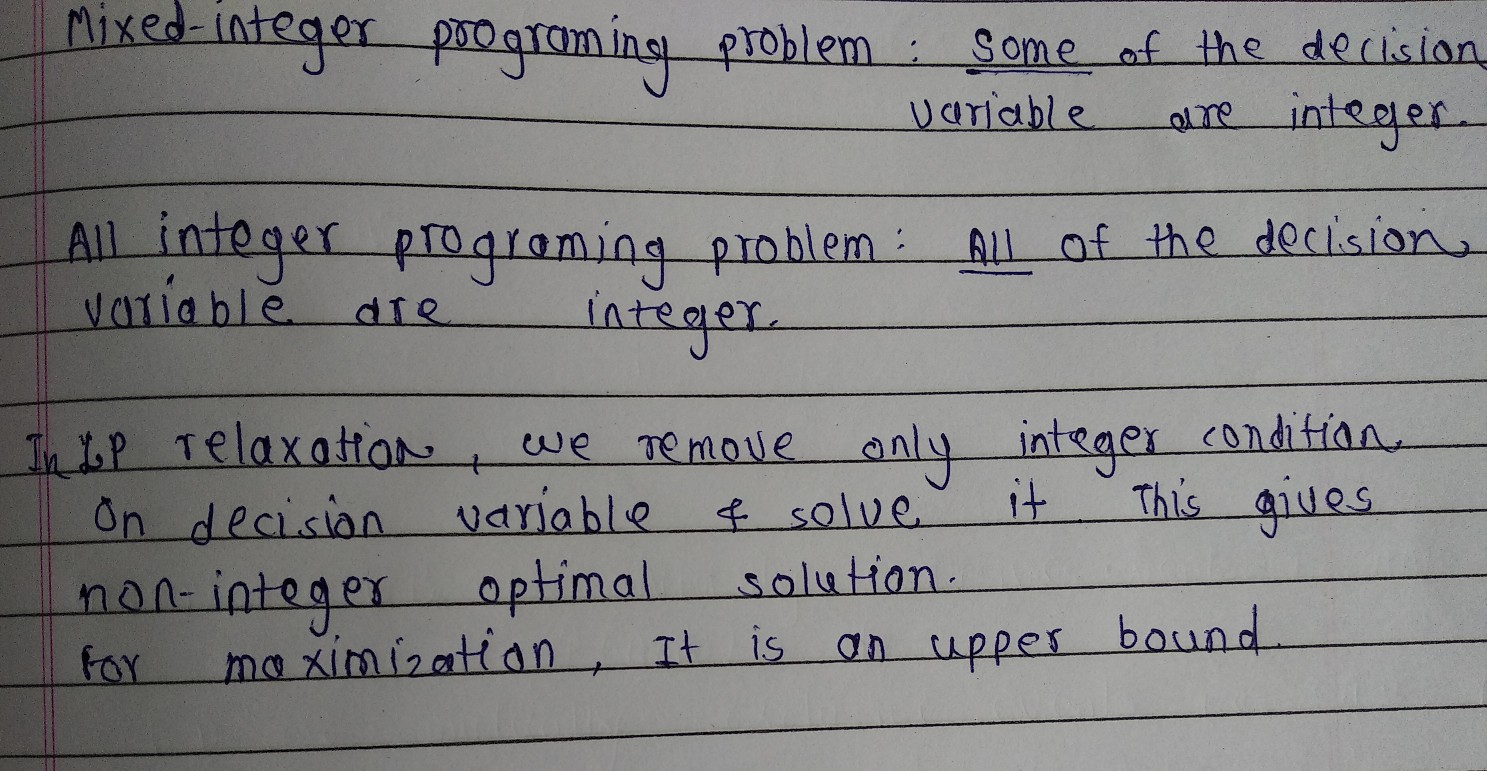 Mixed-integer programing problem : Some of the decision
variable are integer.
All integer programing problem : All of the decision
variable are integer.
In LP relaxation, we remove only integer condition
On decision variable & solve it This gives
non-integer optimal solution.
For maximization, It is an upper bound.